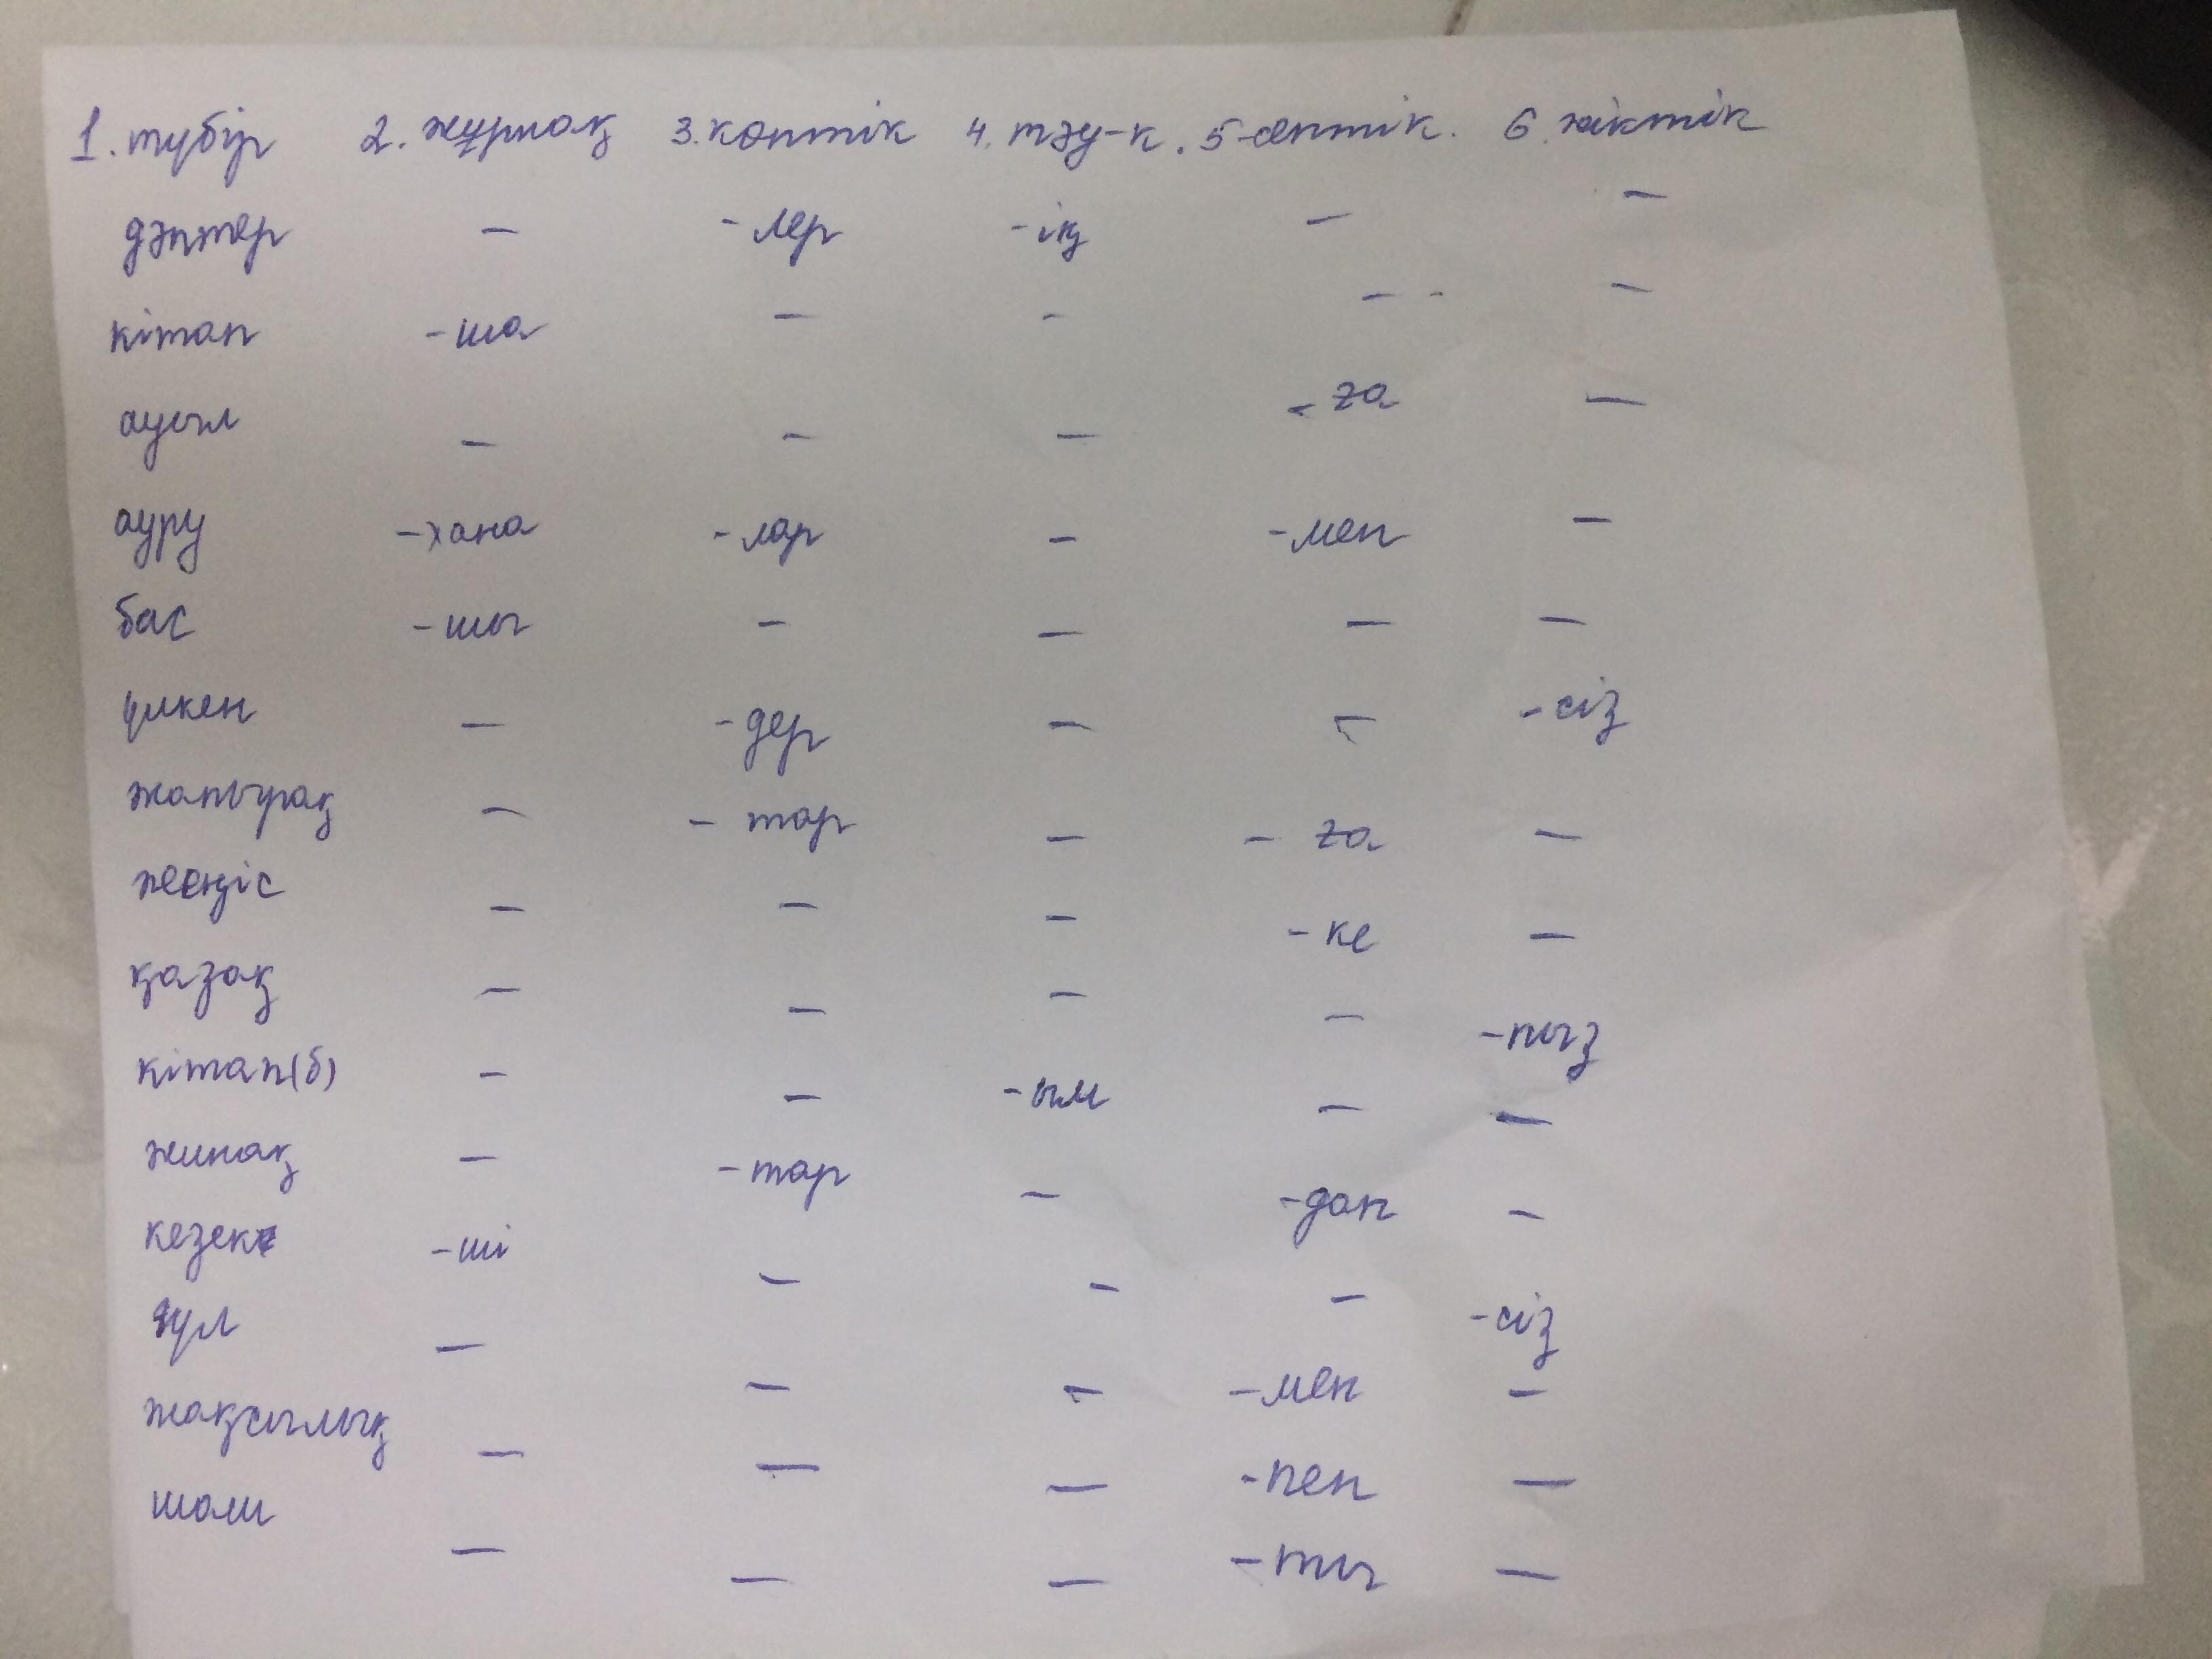 1. түбір 2. жұрнақ 3. көптік 4. тәу-к. 5-септік. 6. жіктік
дәптер – -лер -ің – –
кітап -ша – – – –
ауыл – – – -ға –
ауру -хана -лар – -мен –
бас -шы – – – –
үлкен – -дер – – -сіз
жапырақ – -тар – -ға –
жеңіс – – – -ке –
қазақ – – – – -пыз
кітап(б) – – -ым – –
жинақ – -тар – -дан –
кезек -ші – – – -сіз
гүл – – – -мен –
жақсылық – – – -пен –
шаш – – – -ты –